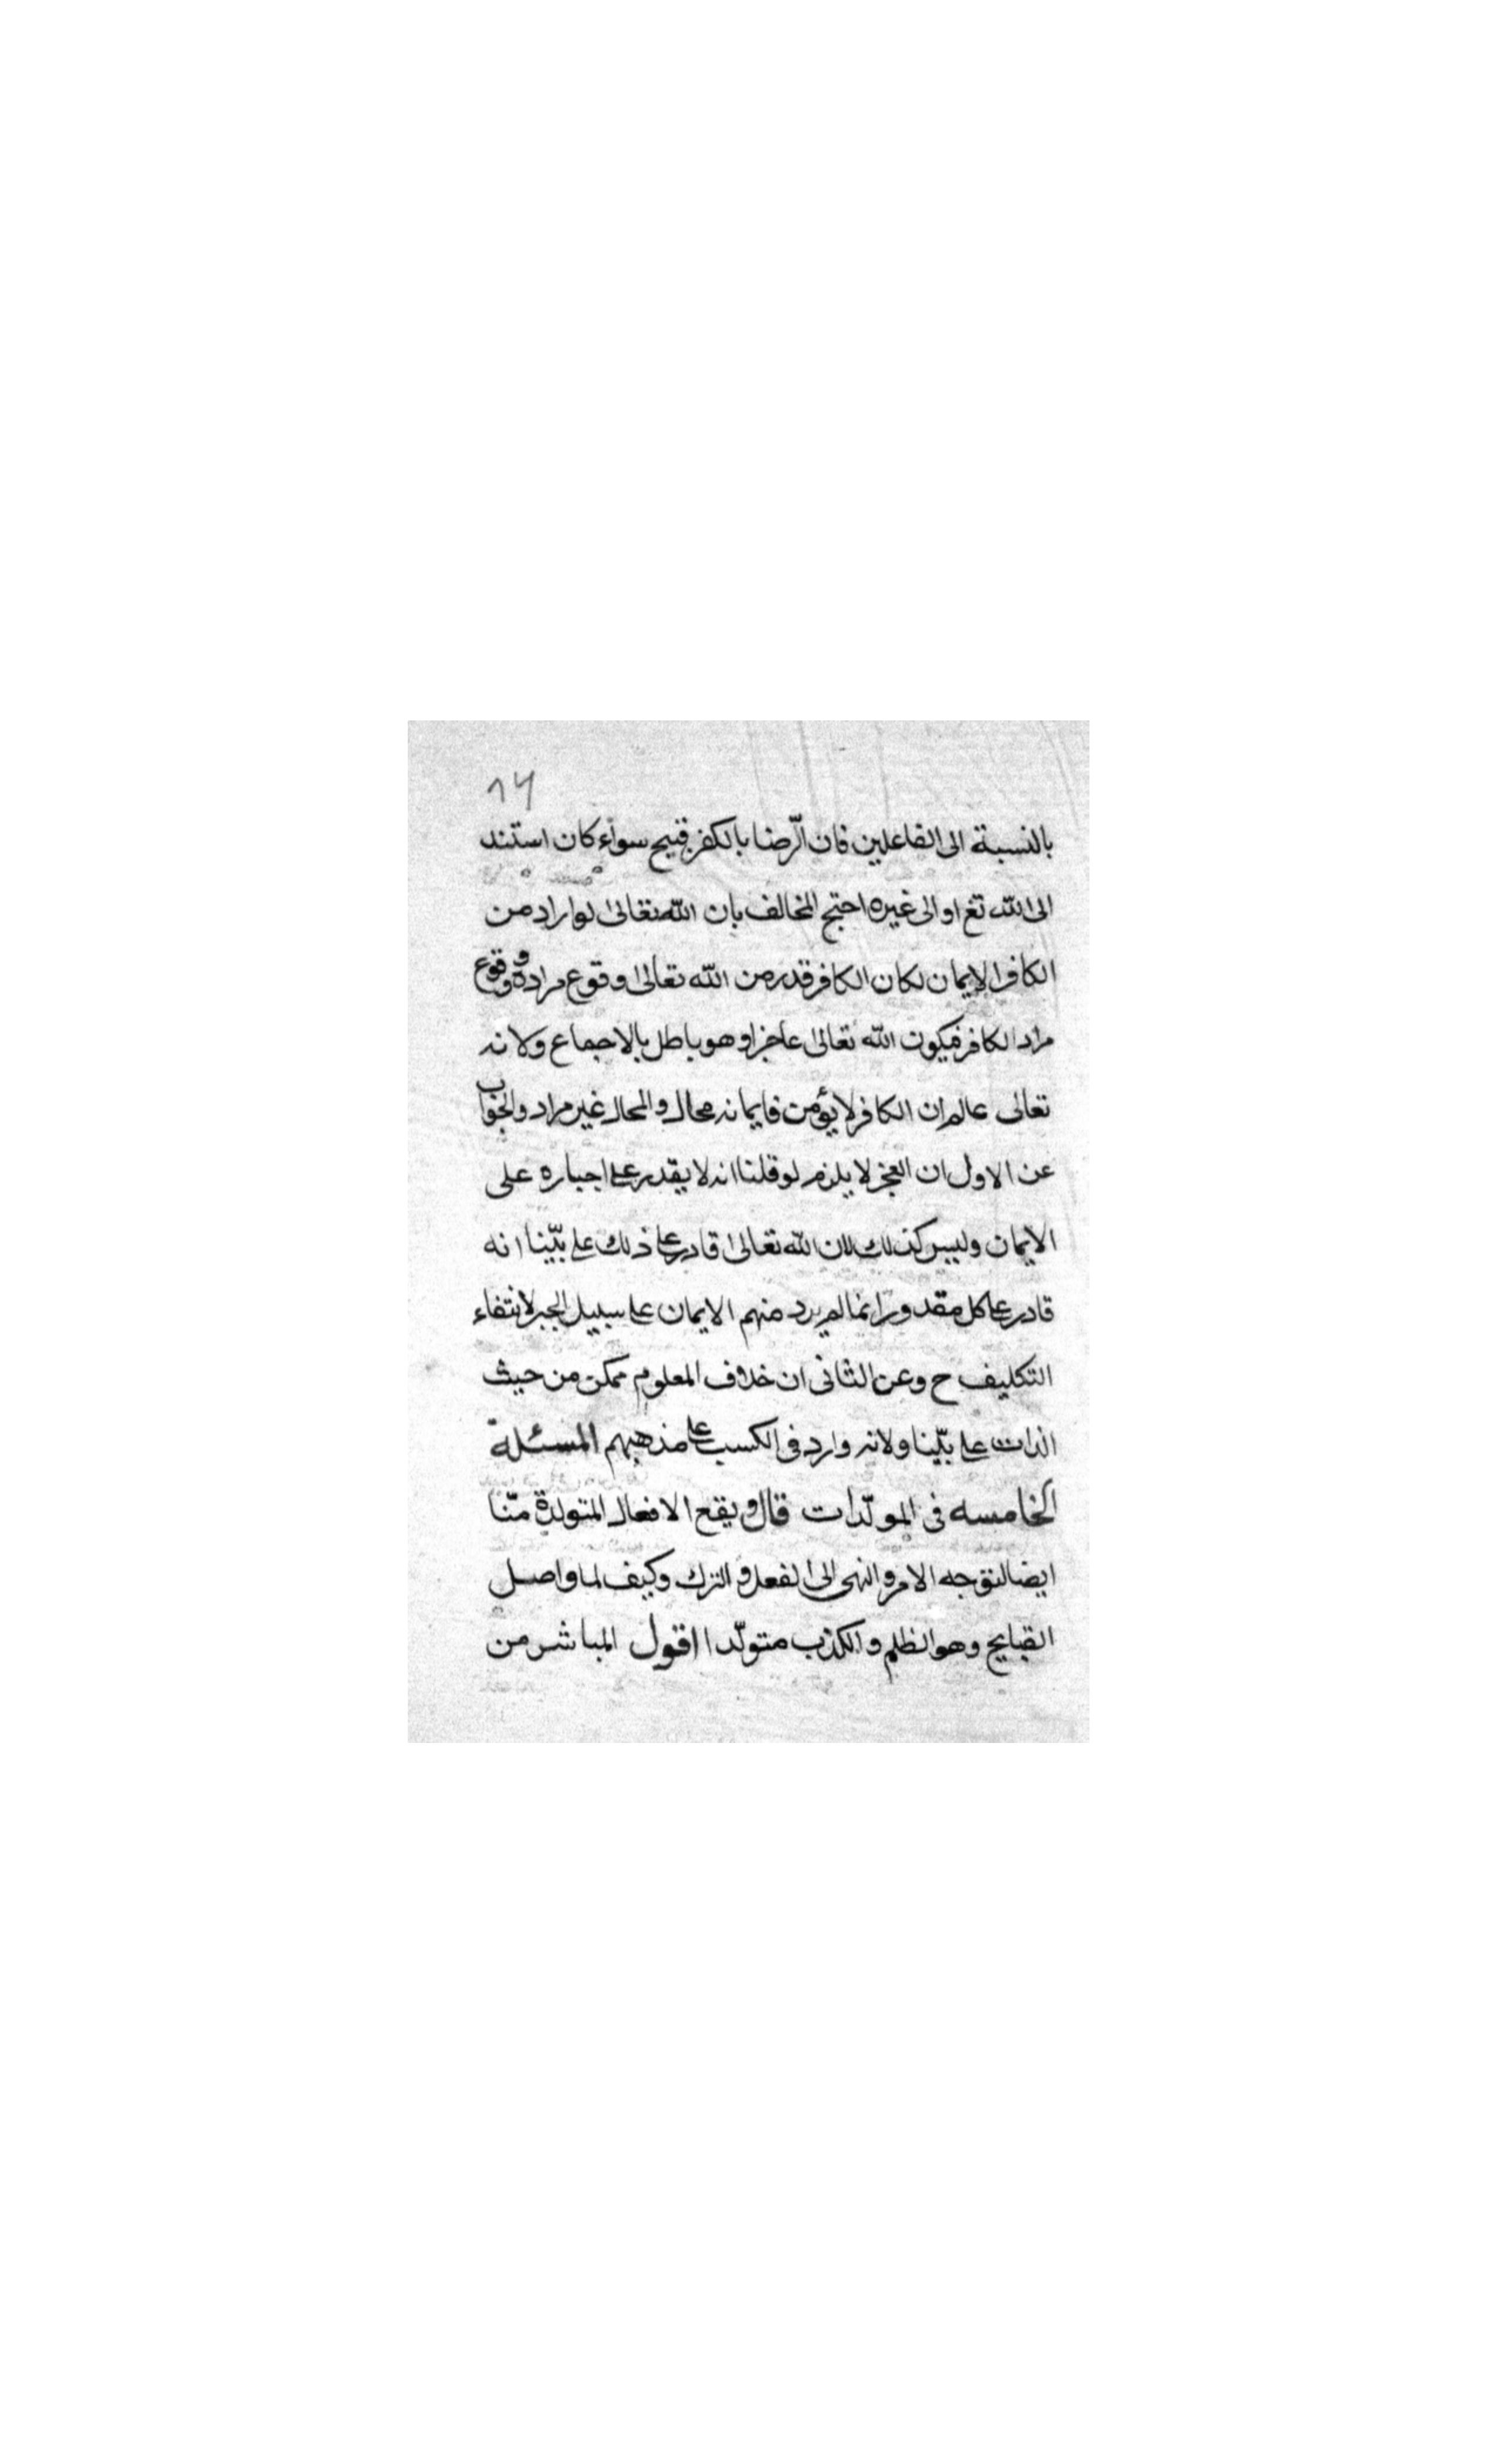 ٨٦
بالنسبة الى الفاعلين فان الرّضا بالكفر قبيح سوآء كان استند
الى الله تع او الى غيره احتج المخالف بان الله تعالى لو اراد من
الكافر الايمان لكان الكافر قدر من الله تعالى وقوع مراده ووقوع
مراد الكافر فيكون الله تعالى عاجزا وهو باطل بالاجماع ولانه
تعالى عالم ان الكافر لا يؤمن فايمانه محال والمحال غير مراد والجواب
عن الاول ان العجز لا يلزم لو قلنا انه لا يقدر على اجباره على
الايمان وليس كذلك لان الله تعالى قادر على ذلك على بيّنا انه
قادر على كل مقدور انما لم يرد منهم الايمان على سبيل الجبر لانتفاء
التكليف ح وعن الثانى ان خلاف المعلوم ممكن من حيث
الذات على بيّنا ولانه وارد فى الكسب على مذهبهم المسئلة
الخامسه فى المولّدات قال ويقع الافعال المتولدة منّا
ايضا لتوجه الامر والنهى الى الفعل والترك وكيف لما واصل
القبايح وهو الظلم والكذب متولّدا اقول المباشر من